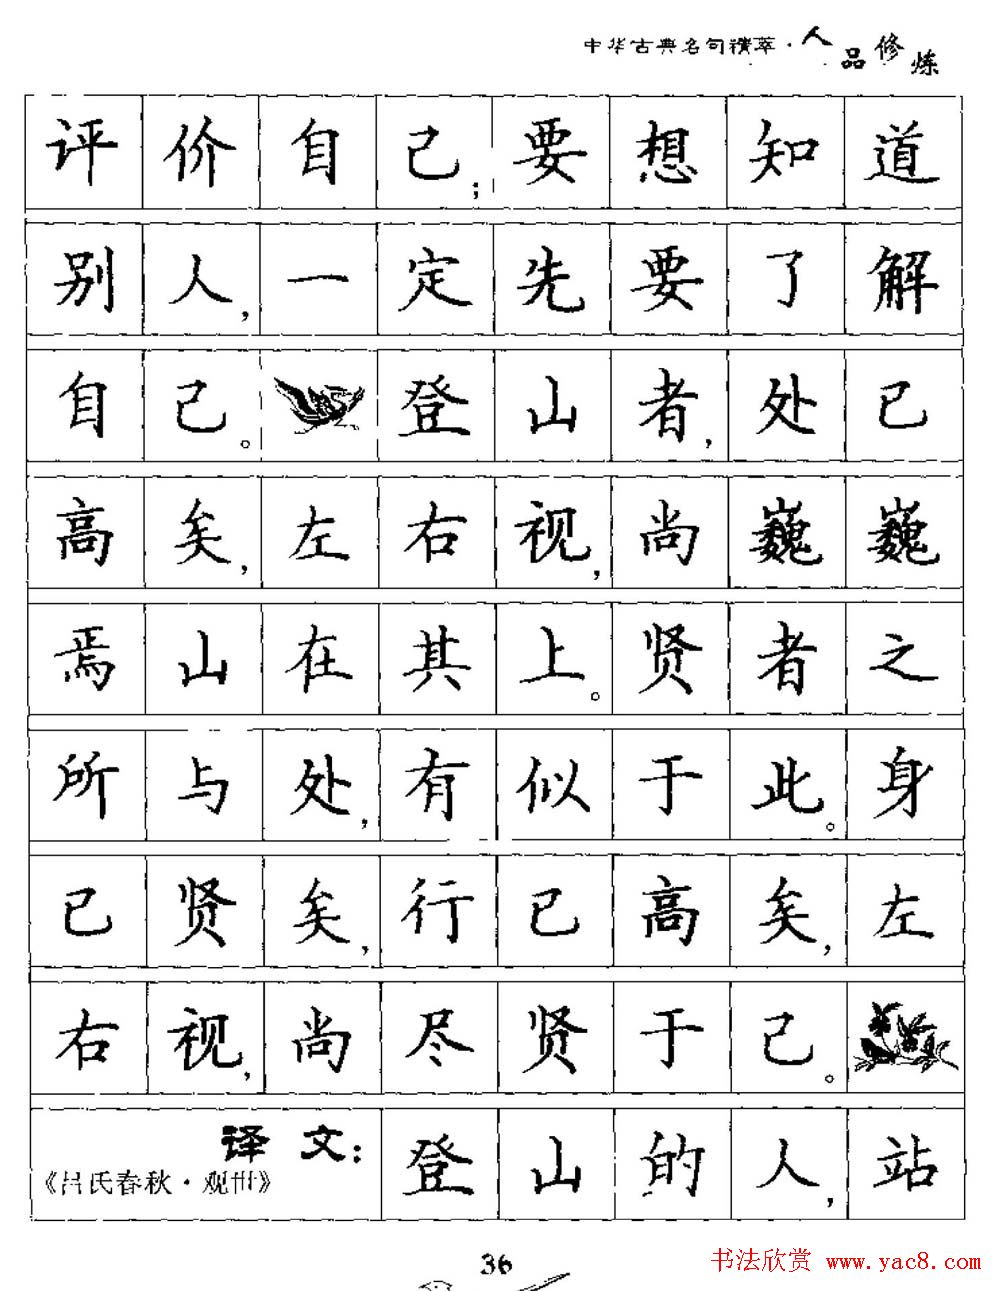 中华古典名句精萃·人品修炼
评价自己；要想知道
别人，一定先要了解
自己。登山者，处已
高矣，左右视，尚巍巍
焉山在其上。贤者之
所与处，有似于此。身
已贤矣，行已高矣，左
右视，尚尽贤于己。
译文：登山的人，站
《吕氏春秋·观世》
36
书法欣赏 www.yac8.com